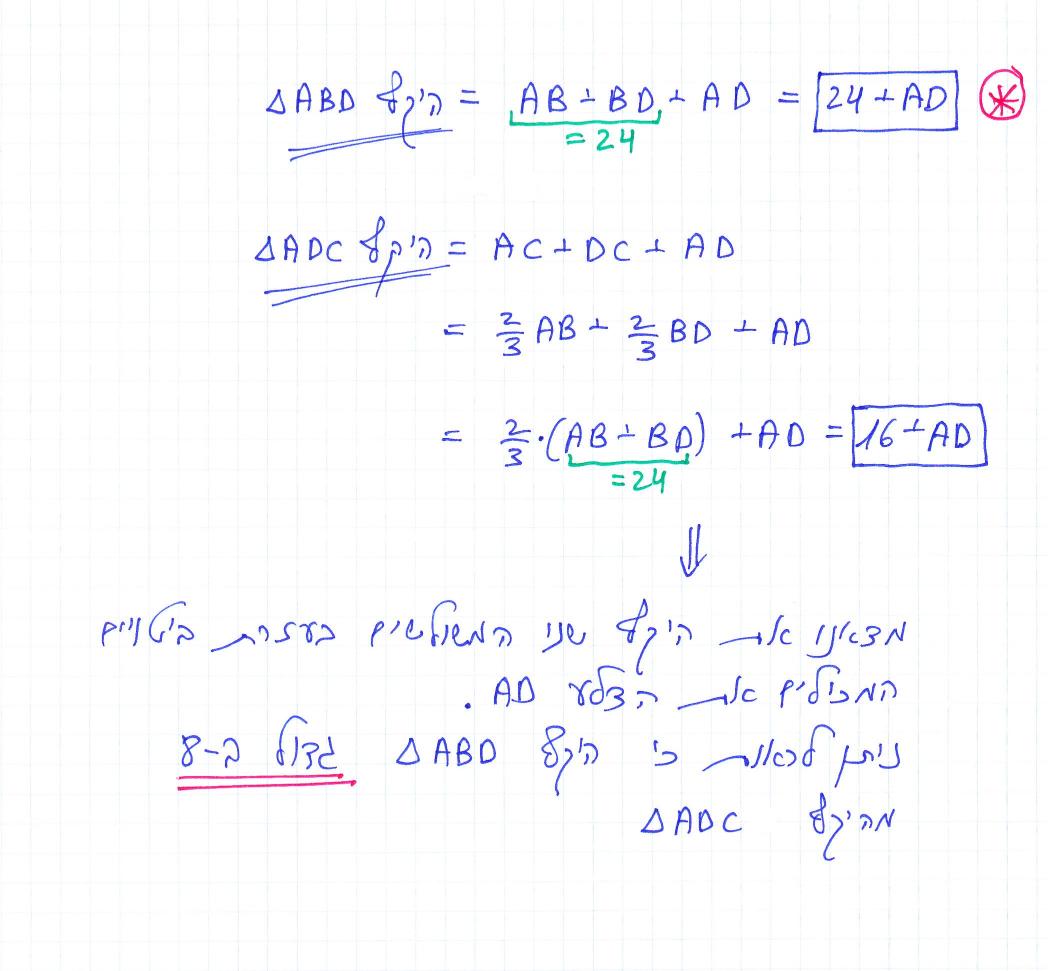 ΔABD היקף = AB + BD + AD = 24 + AD *
= 24
ΔADC היקף = AC + DC + AD
= 2/3 AB + 2/3 BD + AD
= 2/3 · (AB + BD) + AD = 16 + AD
= 24
⇓
מצאנו את היקף שני המשולשים בעזרת ביטויים
המכילים את הצלע AD .
ניתן לראות כי היקף ΔABD גדול ב-8
מהיקף ΔADC